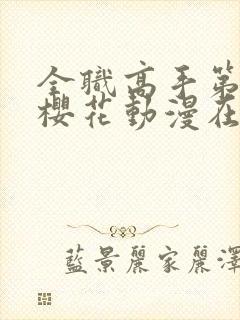 全職高手第
櫻花動漫在
藍景麗家麗澤